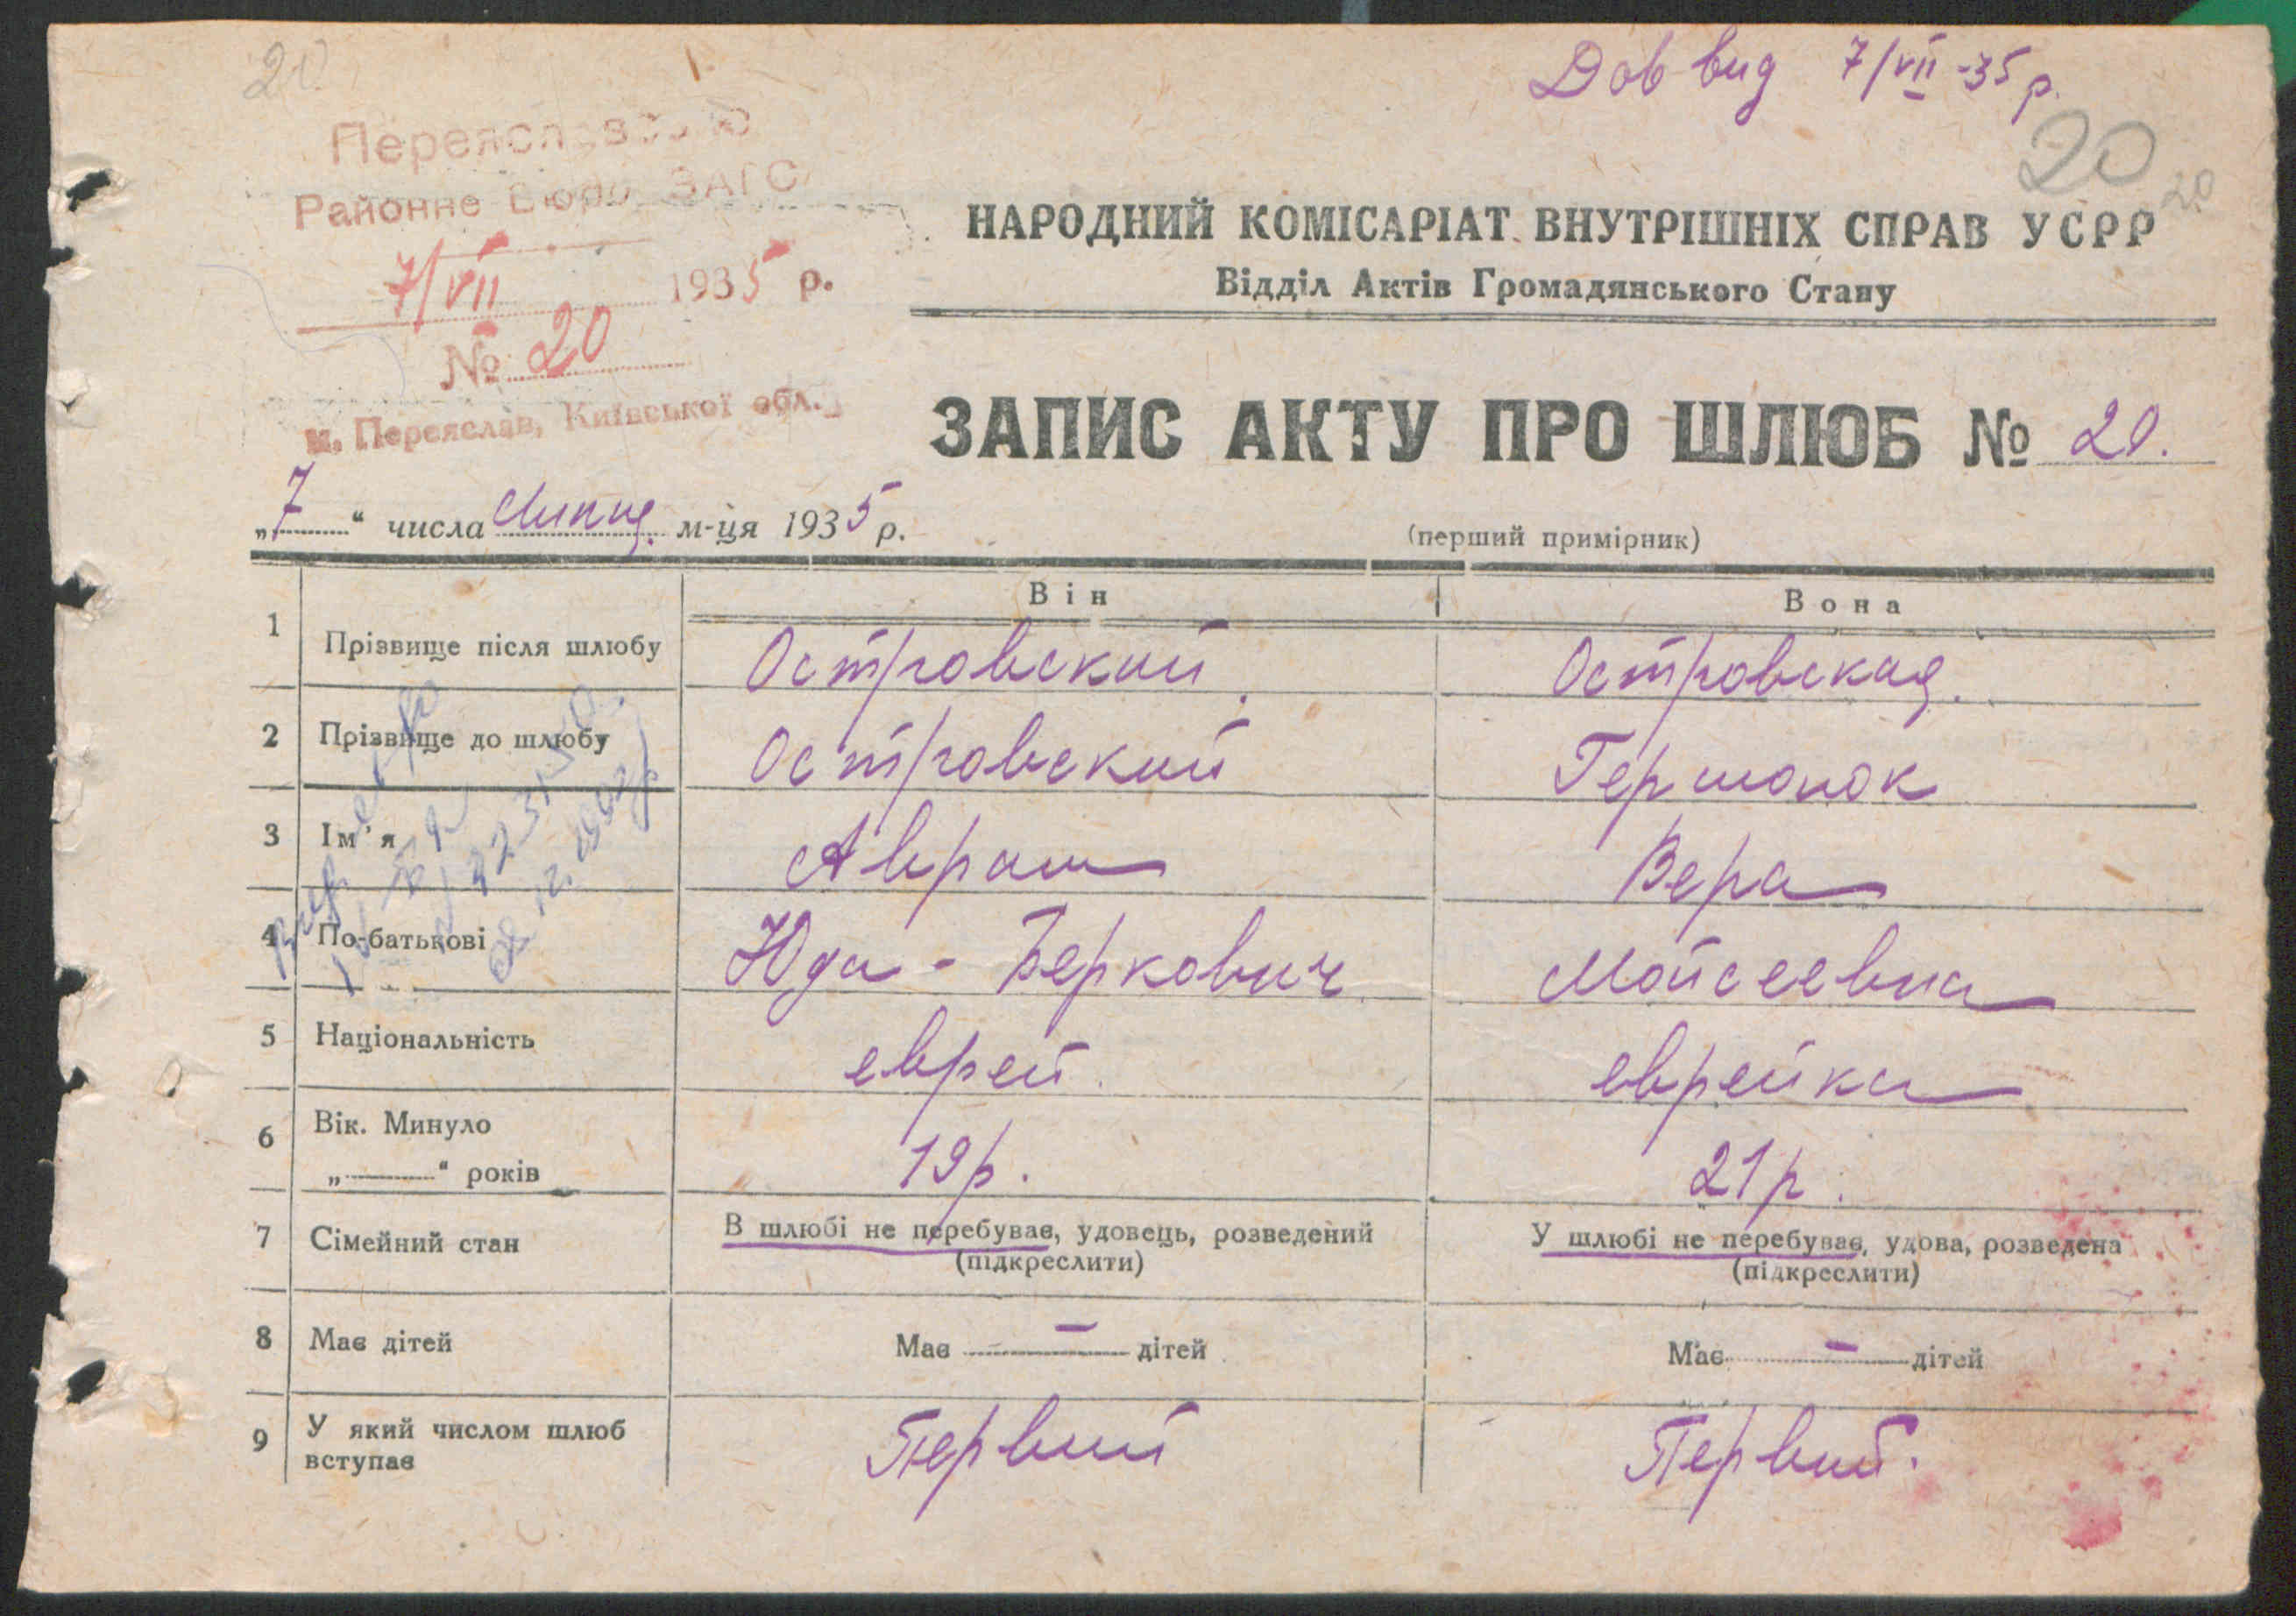 20
Дов вид 7/VII-35 р.
20
20
Переяславське
Районне Бюро ЗАГС
7/VII 1935 р.
№ 20
м. Переяслав, Київської обл.
НАРОДНИЙ КОМІСАРІАТ ВНУТРІШНІХ СПРАВ УСРР
Відділ Актів Громадянського Стану
ЗАПИС АКТУ ПРО ШЛЮБ № 20.
„7“ числа Липня. м-ця 1935 р.
(перший примірник)
Він Вона
1 Прізвище після шлюбу Островский. Островская.
2 Прізвище до шлюбу Островский Гершонок
3 Ім'я Аврам Вера
4 По-батькові Юда-Беркович Мойсеевна
5 Національність еврей. еврейка
6 Вік. Минуло
„ “ років 19 р. 21 р.
7 Сімейний стан В шлюбі не перебуває, удовець, розведений У шлюбі не перебуває, удова, розведена
(підкреслити) (підкреслити)
8 Має дітей Має — дітей Має — дітей
9 У який числом шлюб
вступає Первий Первий.